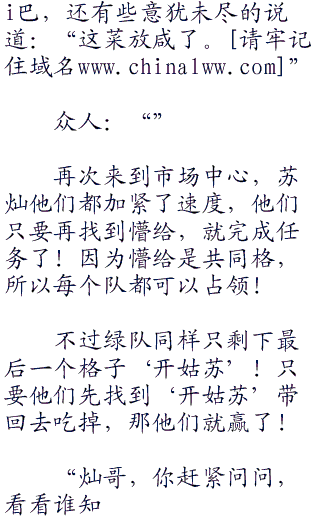 i巴，还有些意犹未尽的说
道：“这菜放咸了。[请牢记
住域名www.chinalww.com]”
众人：“”
再次来到市场中心，苏
灿他们都加紧了速度，他们
只要再找到懵给，就完成任
务了！因为懵给是共同格，
所以每个队都可以占领！
不过绿队同样只剩下最
后一个格子‘开姑苏’！只
要他们先找到‘开姑苏’带
回去吃掉，那他们就赢了！
“灿哥，你赶紧问问，
看看谁知